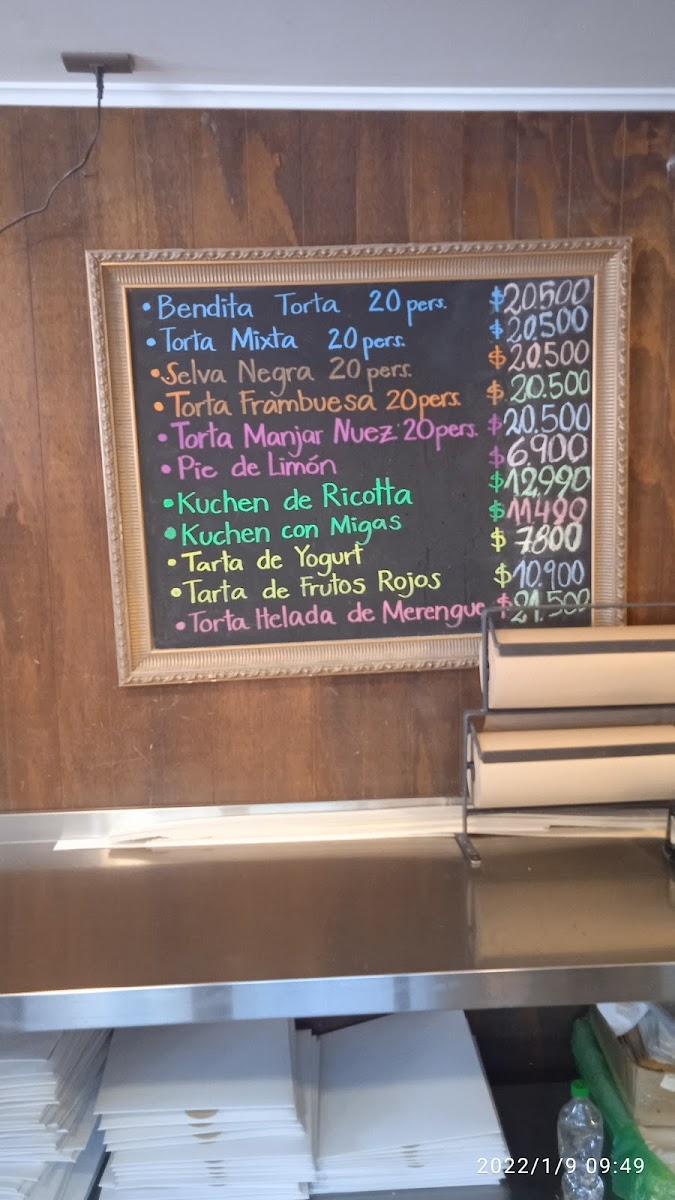 • Bendita Torta 20 pers. $20.500
• Torta Mixta 20 pers. $20.500
• Selva Negra 20 pers. $20.500
• Torta Frambuesa 20 pers. $20.500
• Torta Manjar Nuez 20 pers. $20.500
• Pie de Limón $6.900
• Kuchen de Ricotta $12.990
• Kuchen con Migas $11.490
• Tarta de Yogurt $7.800
• Tarta de Frutos Rojos $10.900
• Torta Helada de Merengue $21.500
2022/1/9 09:49